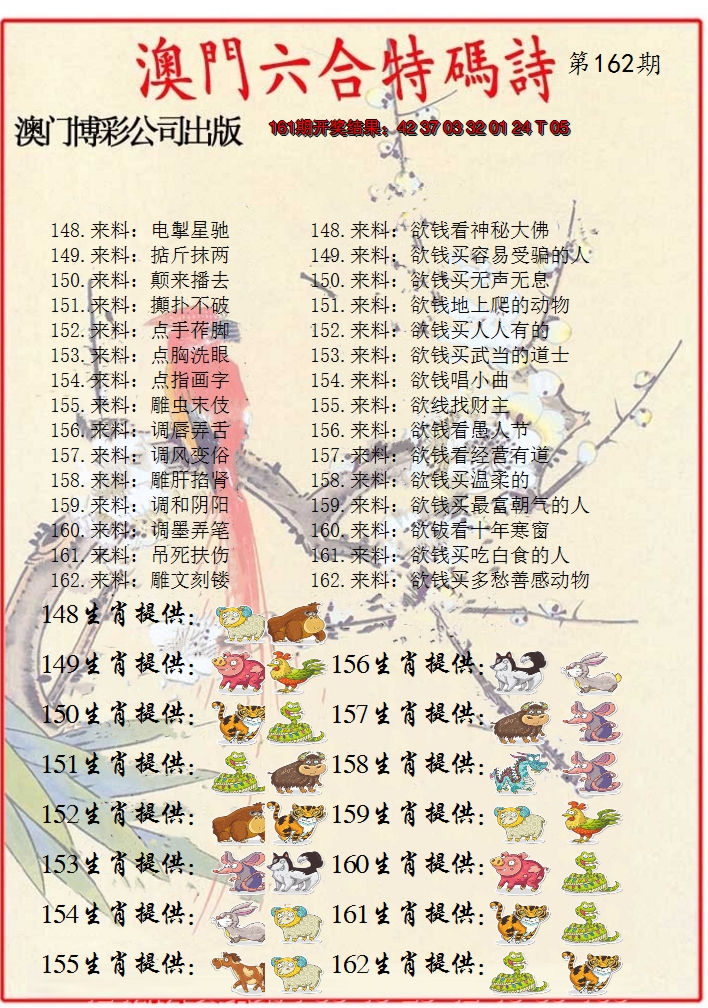 澳門六合特碼詩 第162期
澳门博彩公司出版 161期开奖结果：42 37 03 32 01 24 T 05
148.来料：电掣星驰 148.来料：欲钱看神秘大佛
149.来料：掂斤抹两 149.来料：欲钱买容易受骗的人
150.来料：颠来播去 150.来料：欲钱买无声无息
151.来料：攧扑不破 151.来料：欲钱地上爬的动物
152.来料：点手莋脚 152.来料：欲钱买人人有的
153.来料：点胸洗眼 153.来料：欲钱买武当的道士
154.来料：点指画字 154.来料：欲钱唱小曲
155.来料：雕虫末伎 155.来料：欲线找财主
156.来料：调唇弄舌 156.来料：欲钱看愚人节
157.来料：调风变俗 157.来料：欲钱看经营有道
158.来料：雕肝掐肾 158.来料：欲钱买温柔的
159.来料：调和阴阳 159.来料：欲钱买最富朝气的人
160.来料：调墨弄笔 160.来料：欲钹看十年寒窗
161.来料：吊死扶伤 161.来料：欲钱买吃白食的人
162.来料：雕文刻镂 162.来料：欲钱买多愁善感动物
148生肖提供：
149生肖提供： 156生肖提供：
150生肖提供： 157生肖提供：
151生肖提供： 158生肖提供：
152生肖提供： 159生肖提供：
153生肖提供： 160生肖提供：
154生肖提供： 161生肖提供：
155生肖提供： 162生肖提供：